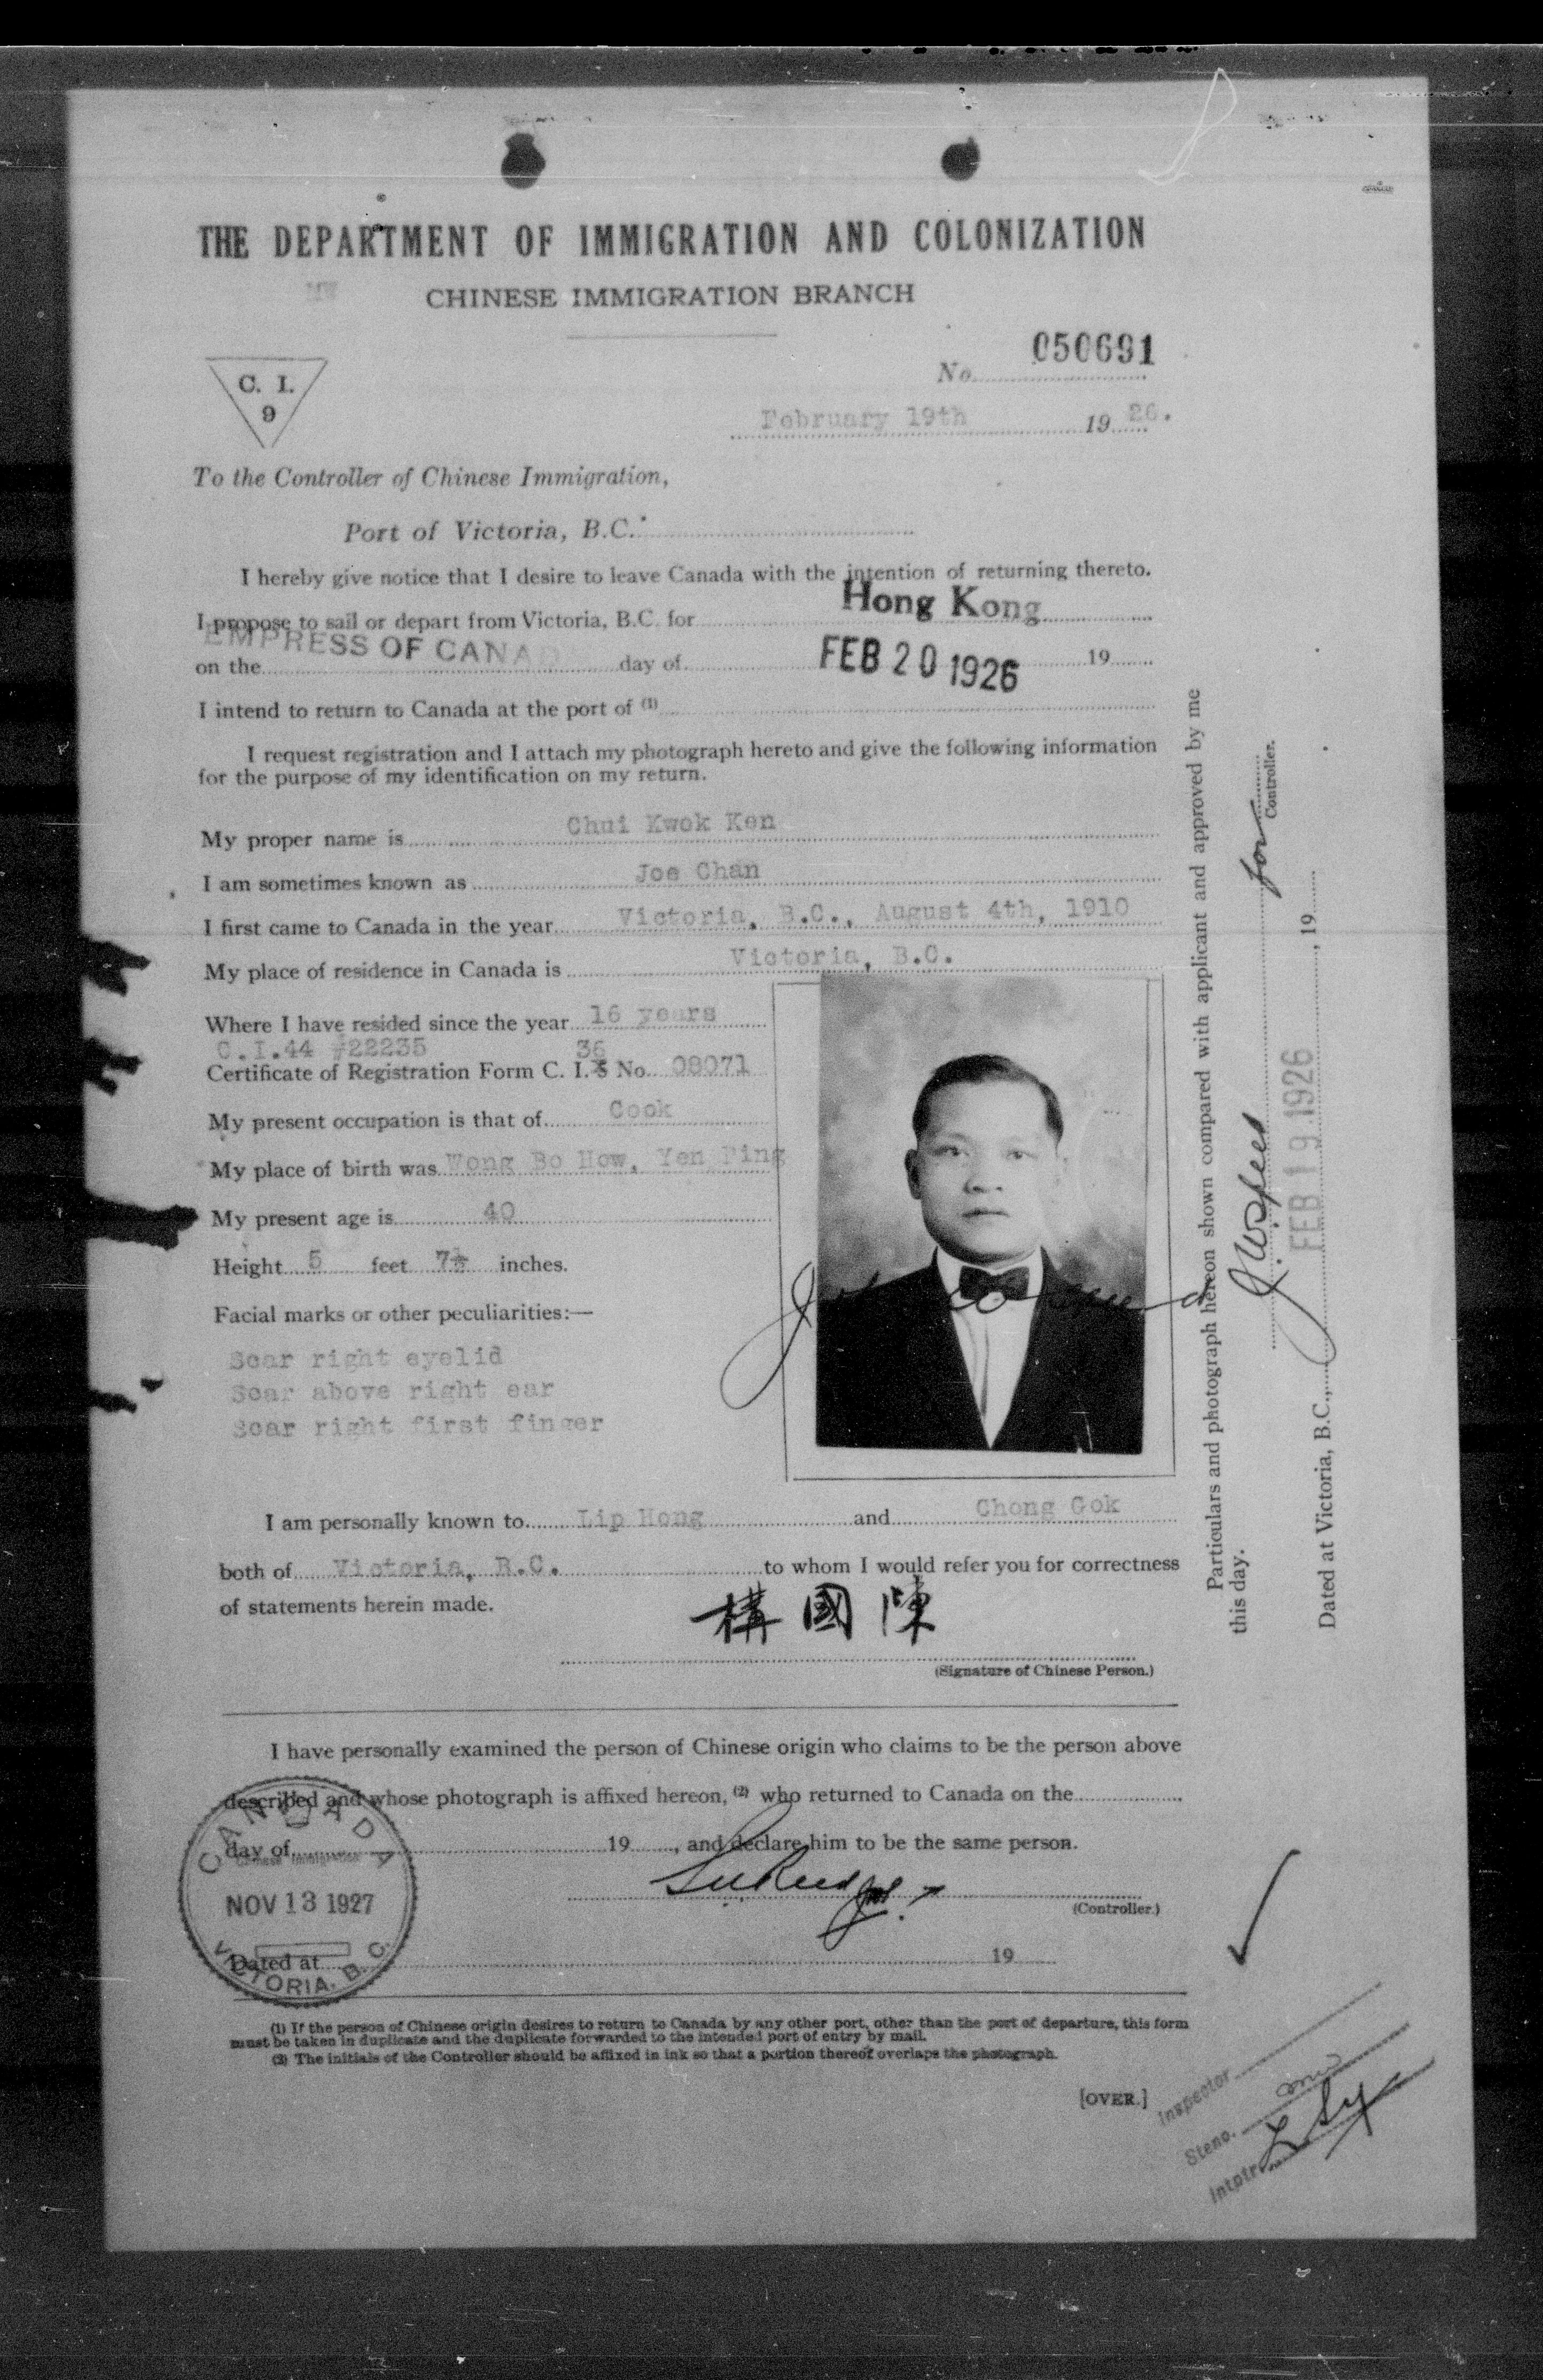 THE DEPARTMENT OF IMMIGRATION AND COLONIZATION
MW
CHINESE IMMIGRATION BRANCH
C. I.
9
No. 050691
February 19th 1926.
To the Controller of Chinese Immigration,
Port of Victoria, B.C.
I hereby give notice that I desire to leave Canada with the intention of returning thereto.
I propose to sail or depart from Victoria, B.C. for Hong Kong
EMPRESS OF CANA
on the day of FEB 20 1926 19
I intend to return to Canada at the port of (1)
I request registration and I attach my photograph hereto and give the following information
for the purpose of my identification on my return.
My proper name is Chui Kwok Ken
I am sometimes known as Joe Chan
I first came to Canada in the year Victoria, B.C., August 4th, 1910
My place of residence in Canada is Victoria, B.C.
Where I have resided since the year 16 years
C.I.44 #22235 36
Certificate of Registration Form C. I. 5 No. 08071
My present occupation is that of Cook
My place of birth was Wong Bo How, Yen Ping
My present age is 40
Height 5 feet 7½ inches.
Facial marks or other peculiarities:—
Scar right eyelid
Scar above right ear
Scar right first finger
I am personally known to Lip Hong and Chong Gok
both of Victoria, B.C. to whom I would refer you for correctness
of statements herein made.
構國陳
(Signature of Chinese Person.)
I have personally examined the person of Chinese origin who claims to be the person above
described and whose photograph is affixed hereon, (2) who returned to Canada on the
day of 19, and declare him to be the same person.
(Controller.)
Dated at 19
CANADA
Chinese Immigration
NOV 13 1927
VICTORIA. B. C.
(1) If the person of Chinese origin desires to return to Canada by any other port, other than the port of departure, this form
must be taken in duplicate and the duplicate forwarded to the intended port of entry by mail.
(2) The initials of the Controller should be affixed in ink so that a portion thereof overlaps the photograph.
[OVER.]
Particulars and photograph hereon shown compared with applicant and approved by me
this day.
for Controller.
Dated at Victoria, B.C., FEB 19 1926, 19
Inspector
Steno.
Intptr.